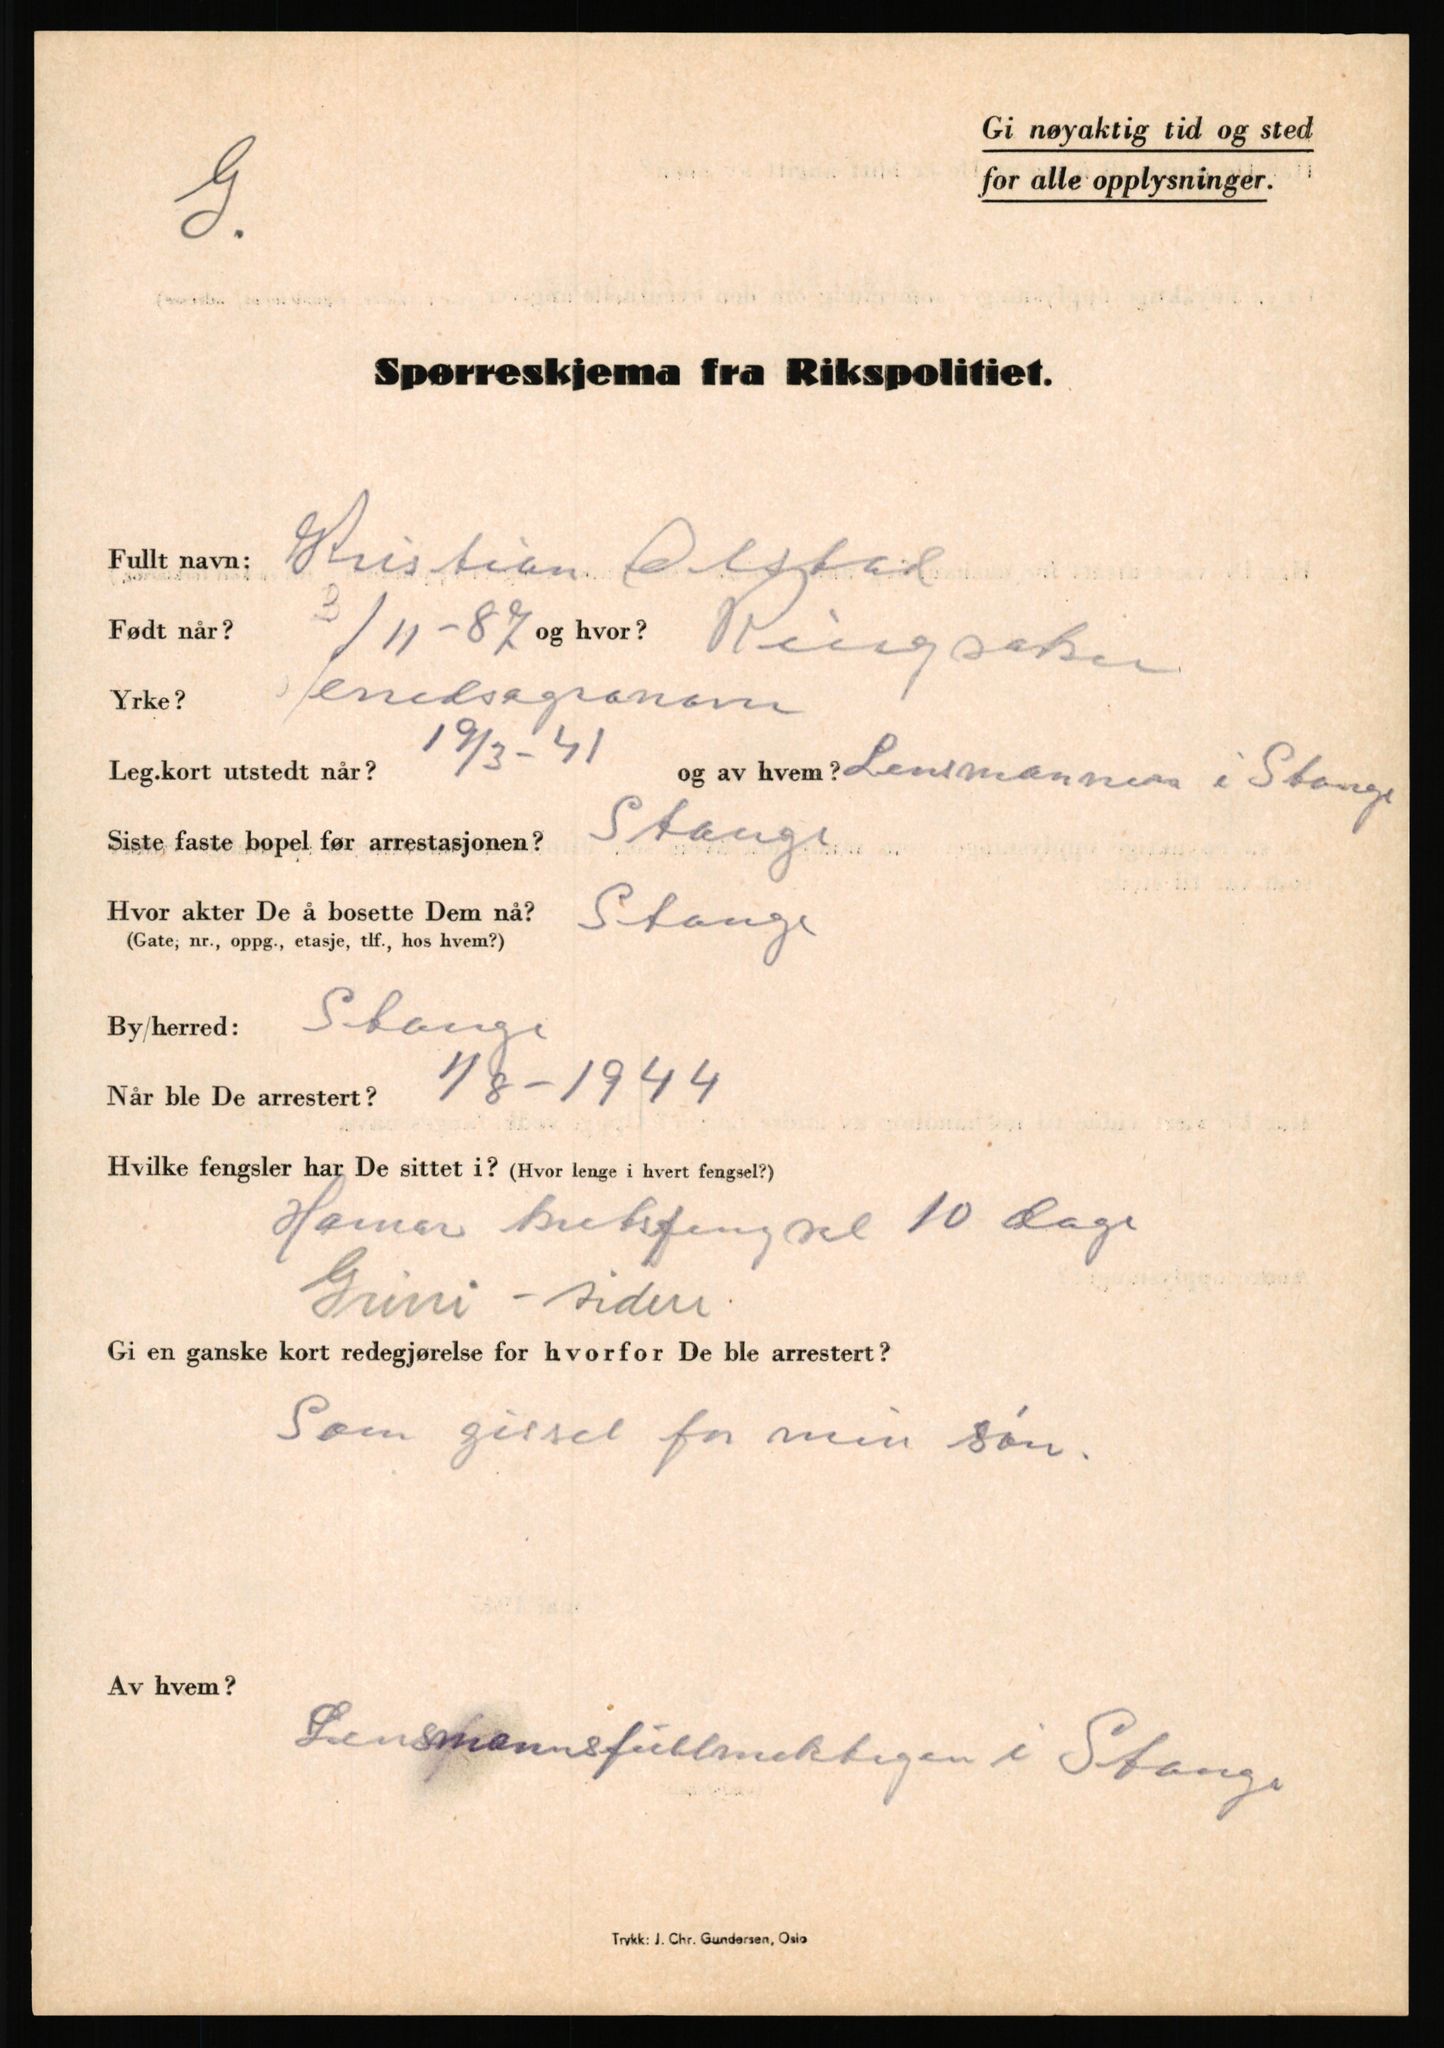 Gi nøyaktig tid og sted
for alle opplysninger.
G.
Spørreskjema fra Rikspolitiet.
Fullt navn: Kristian Olstad
Født når? 3/11-87 og hvor? Ringsaker
Yrke? Herredsagronom
Leg.kort utstedt når? 19/3-41 og av hvem? Lensmannen i Stange
Siste faste bopel før arrestasjonen? Stange
Hvor akter De å bosette Dem nå? Stange
(Gate, nr., oppg., etasje, tlf., hos hvem?)
By/herred: Stange
Når ble De arrestert? 1/8-1944
Hvilke fengsler har De sittet i? (Hvor lenge i hvert fengsel?)
Hamar kretsfengsel 10 dage
Grini - siden.
Gi en ganske kort redegjørelse for hvorfor De ble arrestert?
Som gissel for min søn.
Av hvem?
Lensmannsfullmektigen i Stange
Trykk: J. Chr. Gundersen, Oslo